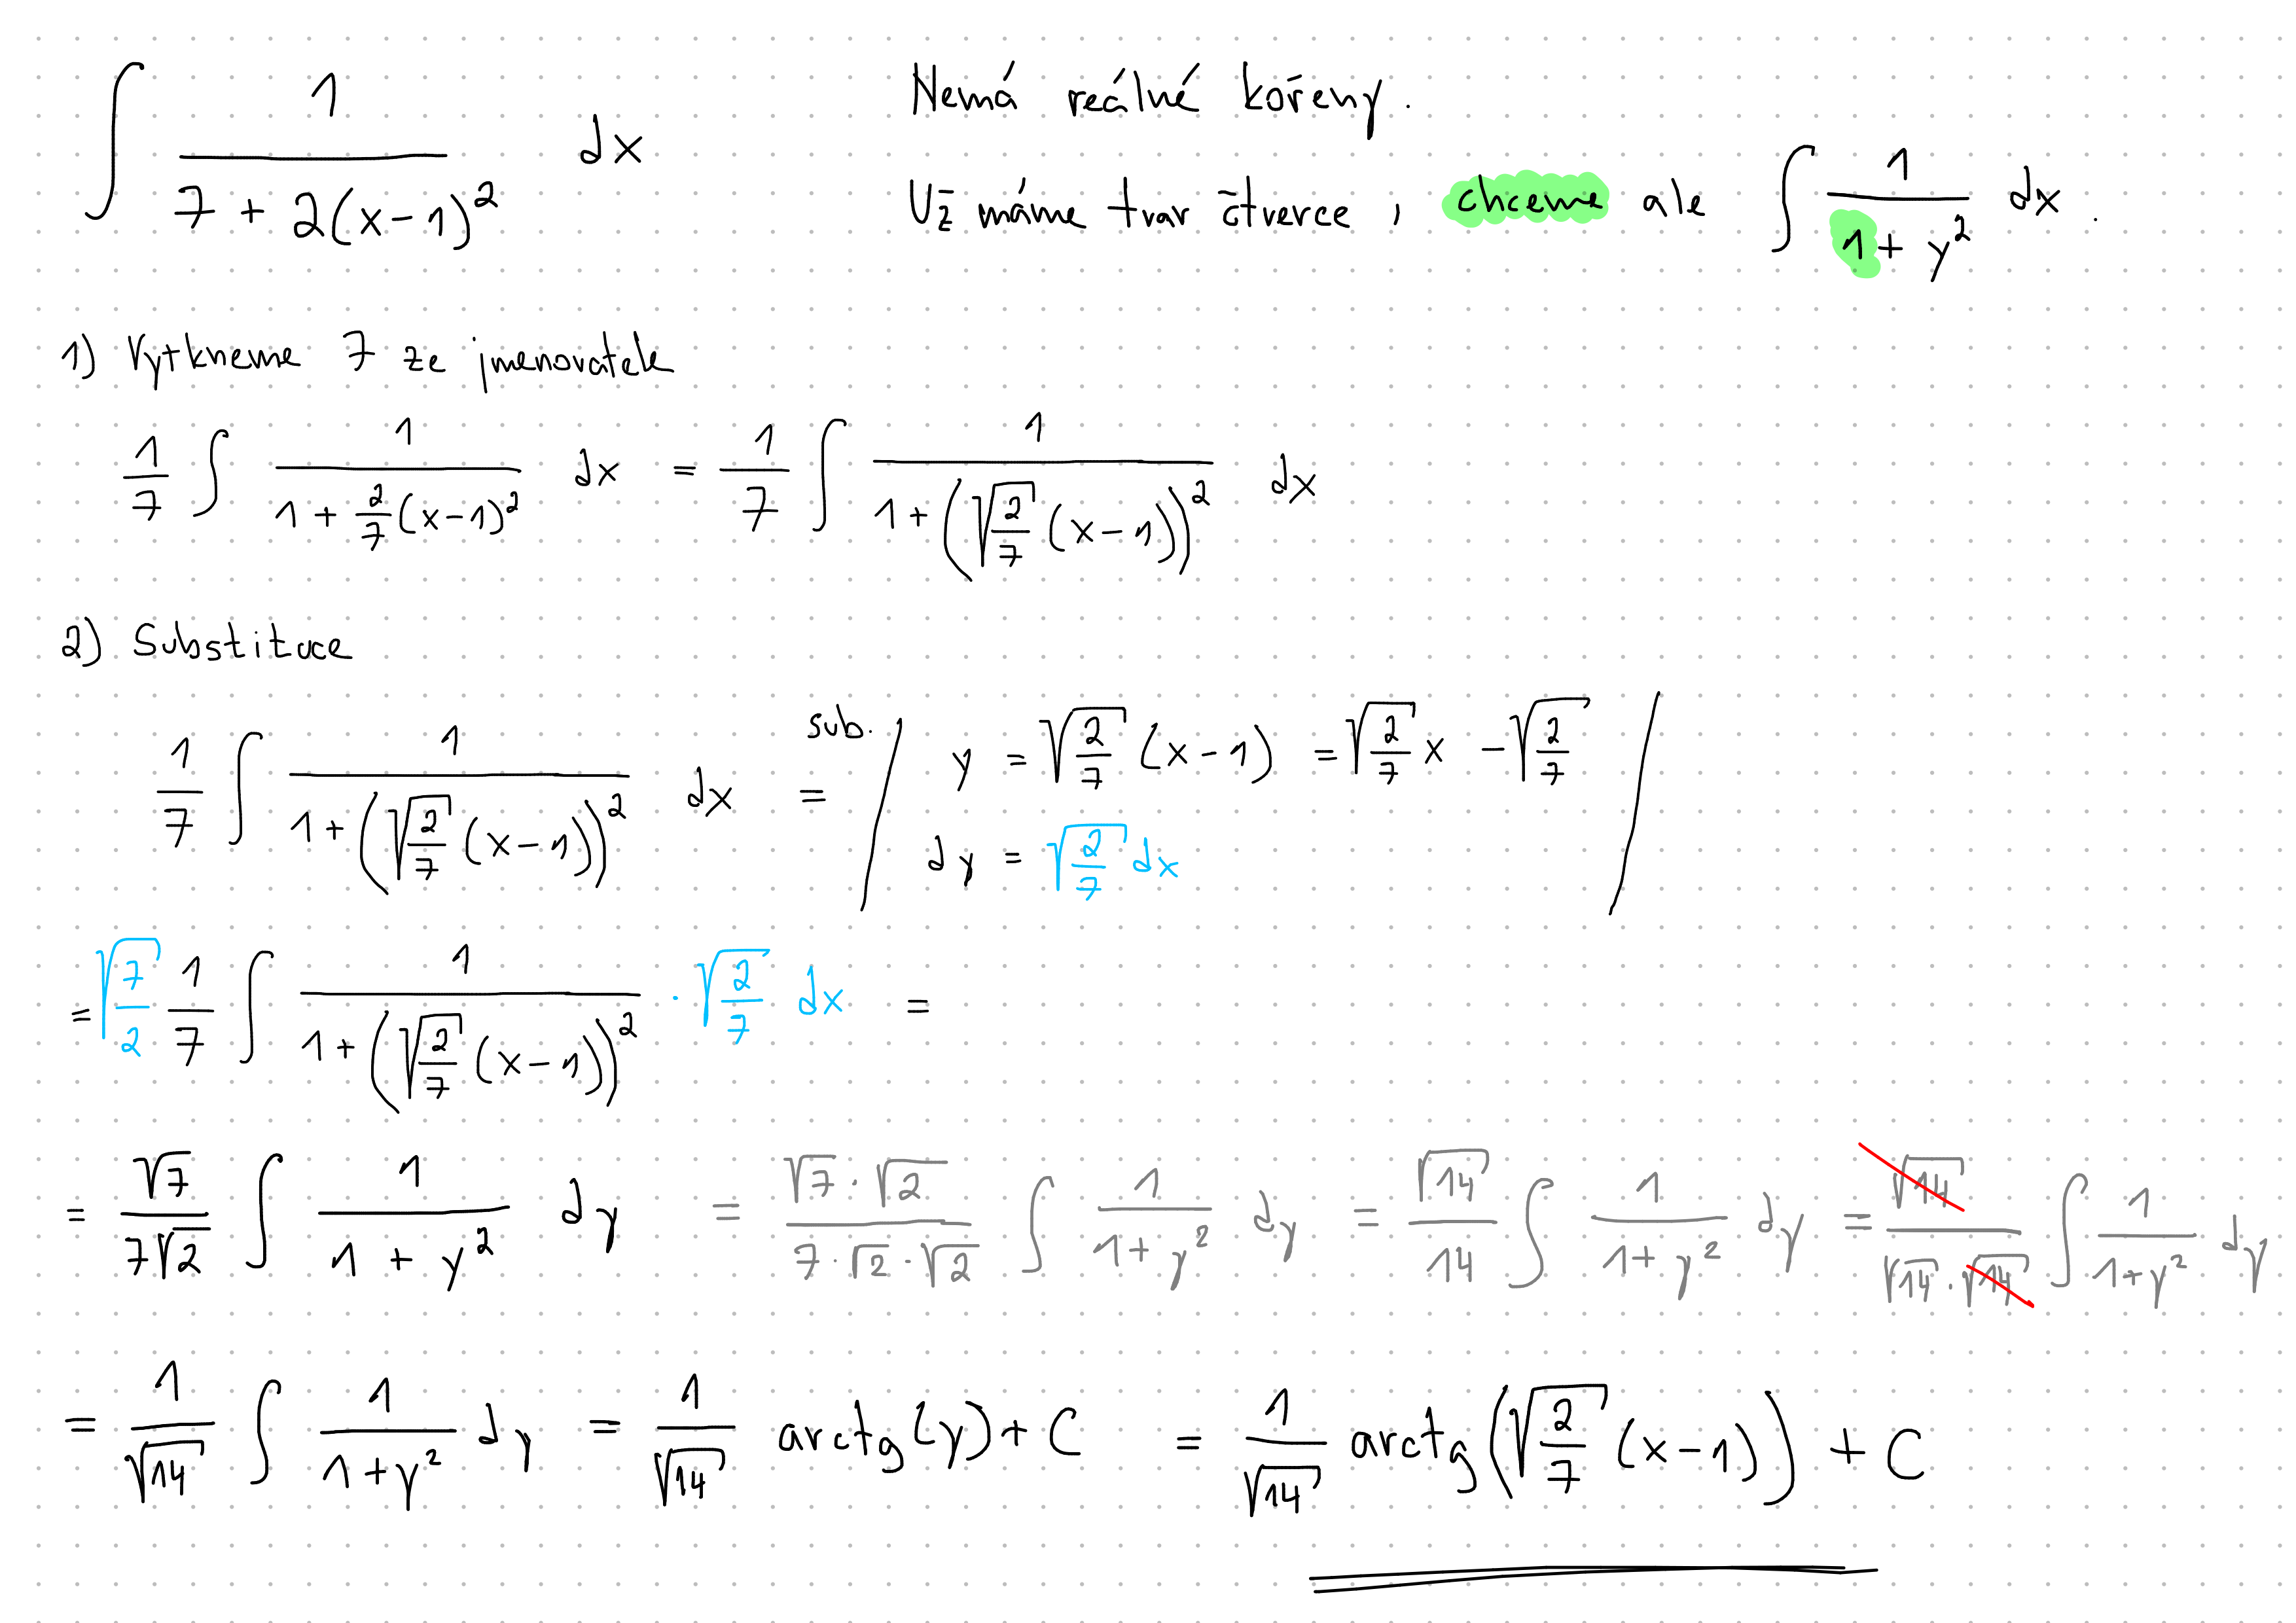 ∫ 1/(7 + 2(x-1)²) dx    Nemá reálné kořeny.
Už máme tvar čtverce, chceme ale ∫ 1/(1 + y²) dx.
1) Vytkneme 7 ze jmenovatele
1/7 ∫ 1/(1 + 2/7 (x-1)²) dx = 1/7 ∫ 1/(1 + (√(2/7) (x-1))²) dx
2) Substituce
1/7 ∫ 1/(1 + (√(2/7) (x-1))²) dx sub. = / y = √(2/7) (x-1) = √(2/7) x - √(2/7) /
dy = √(2/7) dx
= √(7/2) 1/7 ∫ 1/(1 + (√(2/7) (x-1))²) · √(2/7) dx =
= √7/(7√2) ∫ 1/(1 + y²) dy = (√7 · √2)/(7 · √2 · √2) ∫ 1/(1 + y²) dy = √14/14 ∫ 1/(1 + y²) dy = √14/(√14 · √14) ∫ 1/(1 + y²) dy
= 1/√14 ∫ 1/(1 + y²) dy = 1/√14 arctg(y) + C = 1/√14 arctg(√(2/7) (x-1)) + C